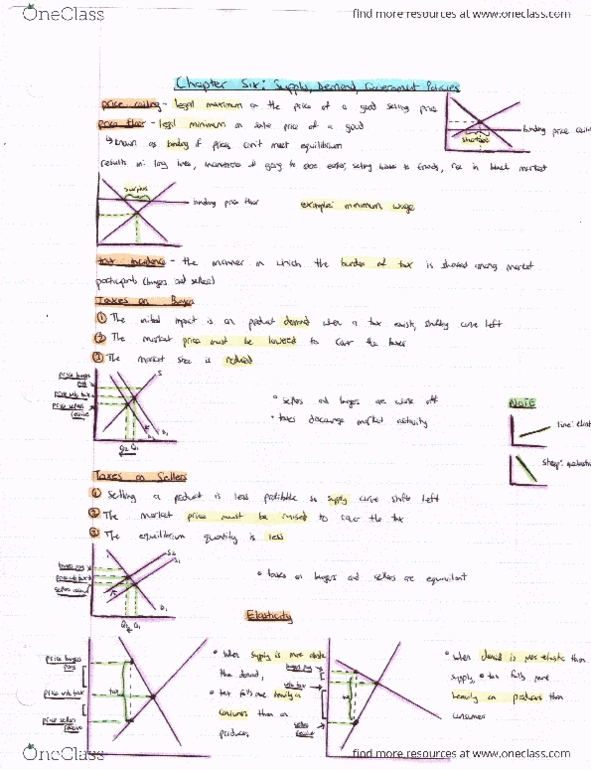 OneClass
find more resources at www.oneclass.com
Chapter Six: Supply, Demand, Government Policies
price ceiling - legal maximum on the price of a good selling price
price floor - legal minimum on sale price of a good
known as binding if prices can't meet equilibrium
binding price
shortage
results in: long lines, to friends, rise in black market
surplus
binding price floor
example: minimum wage
tax incidence - the manner in which the burden of tax is shared among market
participants (buyers and sellers)
Taxes on Buyers
① The initial impact is on product demand when a tax exists, shifting curve left
② The market price must be lowered to cover the taxes
③ The market size is reduced
price buyers
price w/o tax
price sellers
receive
S
D₁
Q₂ Q₁
• sellers and buyers are worse off
• taxes discourage market activity
Note
line: elas
steep: inelastic
Taxes on Sellers
① Selling a product is less profitable so supply curve shifts left
② The market price must be raised to cover the tax
③ The equilibrium quantity is less
S₂
S₁
D₁
Q₂ Q₁
• taxes on buyers and sellers are equivalent
Elasticity
price buyers
pay
price w/o tax
price sellers
receive
tax
• When supply is more elastic
than demand,
• tax falls more heavily on
consumers than on
producers
buyers pay
w/o tax
sellers
receive
tax
• when demand is more elastic than
supply, • tax falls more
heavily on producers than
consumers
OneClass
find more resources at www.oneclass.com